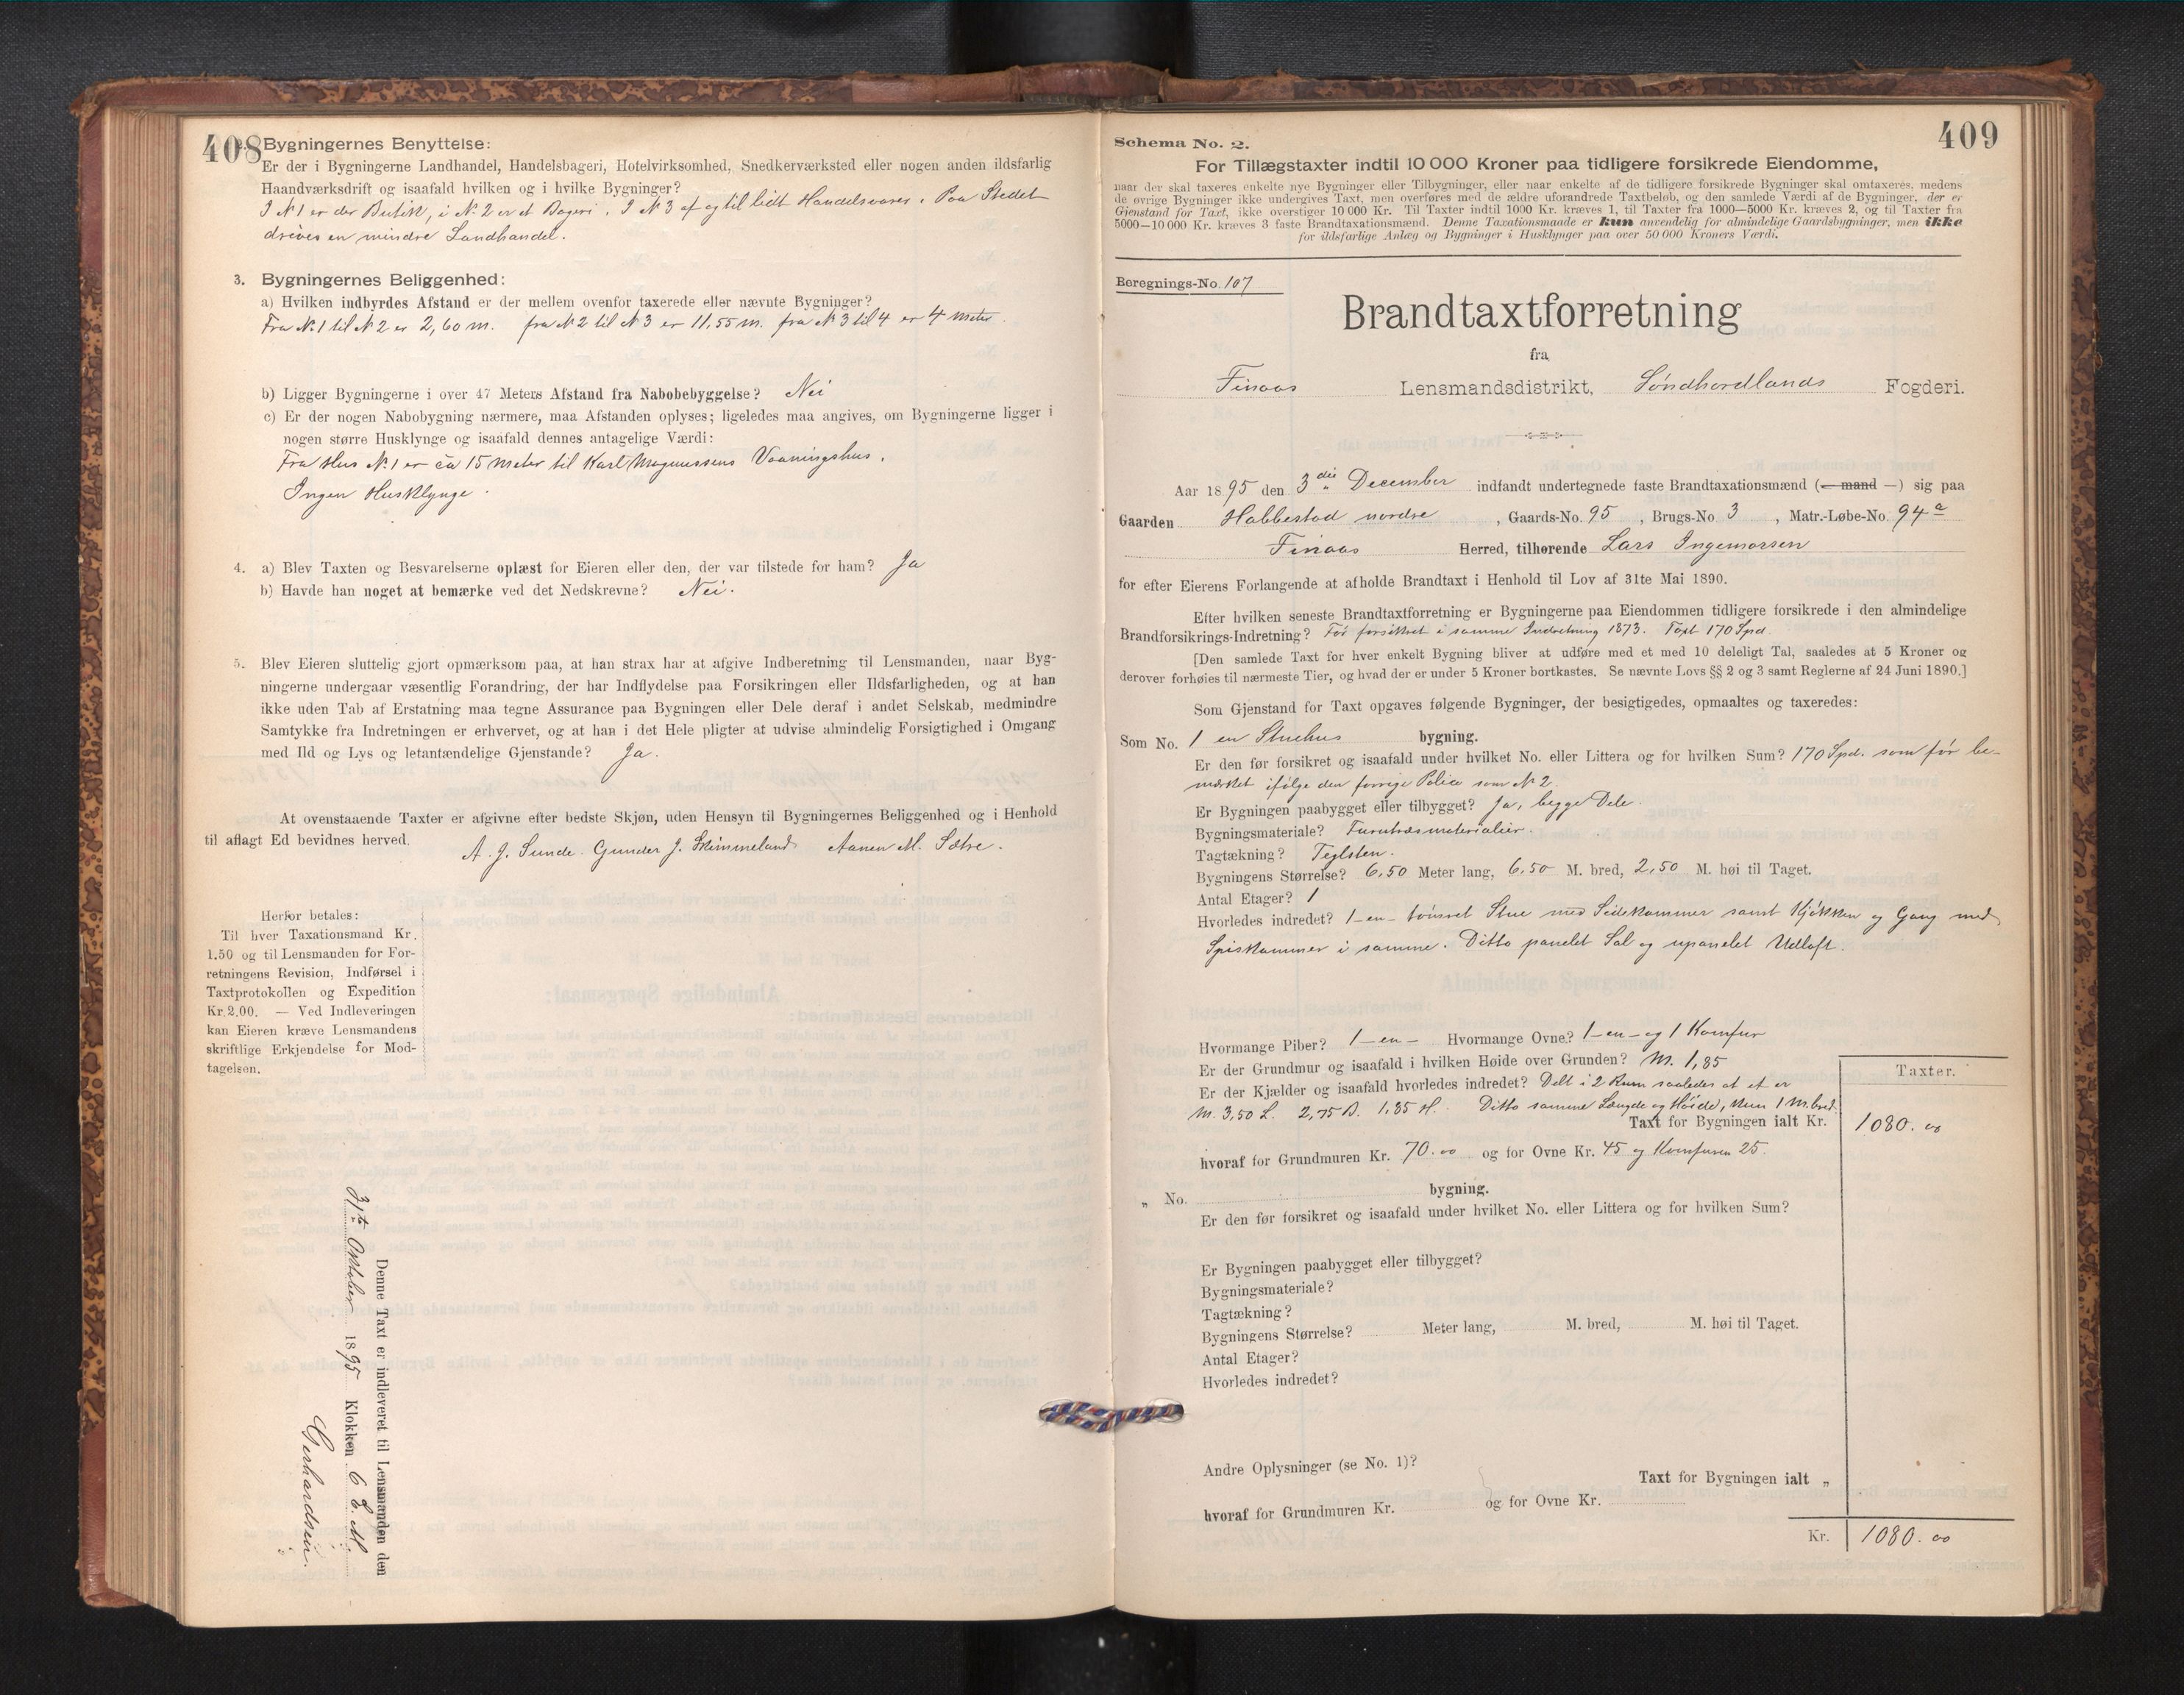 408
2. Bygningernes Benyttelse:
Er der i Bygningerne Landhandel, Handelsbageri, Hotelvirksomhed, Snedkerværksted eller nogen anden ildsfarlig
Haandværksdrift og isaafald hvilken og i hvilke Bygninger?
I N 1 er der Butik, i N. 2 er et Bageri. I N 3 af og til lidt Handelsvarer. Paa Stedet
drives en mindre Landhandel.
3. Bygningernes Beliggenhed:
a) Hvilken indbyrdes Afstand er der mellem ovenfor taxerede eller nævnte Bygninger?
Fra N. 1 til N 2 er 2,60 m. fra N 2 til N 3 er 11,55 m. fra N 3 til 4 er 4 meter.
b) Ligger Bygningerne i over 47 Meters Afstand fra Nabobebyggelse? Nei
c) Er der nogen Nabobygning nærmere, maa Afstanden oplyses; ligeledes maa angives, om Bygningerne ligger i
nogen større Husklynge og isaafald dennes antagelige Værdi:
Fra Hus N. 1 er ca 15 meter til Karl Magnussens Vaaningshus.
Ingen Husklynge.
4. a) Blev Taxten og Besvarelserne oplæst for Eieren eller den, der var tilstede for ham? Ja
b) Havde han noget at bemærke ved det Nedskrevne? Nei.
5. Blev Eieren sluttelig gjort opmærksom paa, at han strax har at afgive Indberetning til Lensmanden, naar Byg-
ningerne undergaar væsentlig Forandring, der har Indflydelse paa Forsikringen eller Ildsfarligheden, og at han
ikke uden Tab af Erstatning maa tegne Assurance paa Bygningen eller Dele deraf i andet Selskab, medmindre
Samtykke fra Indretningen er erhvervet, og at han i det Hele pligter at udvise almindelig Forsigtighed i Omgang
med Ild og Lys og letantændelige Gjenstande? Ja.
At ovenstaaende Taxter er afgivne efter bedste Skjøn, uden Hensyn til Bygningernes Beliggenhed og i Henhold
til aflagt Ed bevidnes herved.
A. J. Sunde. Gunder J. Skimmeland Aanen M. Sætre.
Herfor betales:
Til hver Taxationsmand Kr.
1.50 og til Lensmanden for For-
retningens Revision, Indførsel i
Taxtprotokollen og Expedition
Kr. 2.00. — Ved Indleveringen
kan Eieren kræve Lensmandens
skriftlige Erkjendelse for Mod-
tagelsen.
Denne Taxt er indleveret til Lensmanden den
31te Oktober 1895 Klokken 6 E. M.
Gerhardsen.
409
Schema No. 2.
For Tillægstaxter indtil 10 000 Kroner paa tidligere forsikrede Eiendomme,
naar der skal taxeres enkelte nye Bygninger eller Tilbygninger, eller naar enkelte af de tidligere forsikrede Bygninger skal omtaxeres, medens
de øvrige Bygninger ikke undergives Taxt, men overføres med de ældre uforandrede Taxtbeløb, og den samlede Værdi af de Bygninger, der er
Gjenstand for Taxt, ikke overstiger 10 000 Kr. Til Taxter indtil 1000 Kr. kræves 1, til Taxter fra 1000—5000 Kr. kræves 2, og til Taxter fra
5000—10 000 Kr. kræves 3 faste Brandtaxationsmænd. Denne Taxationsmaade er kun anvendelig for almindelige Gaardsbygninger, men ikke
for ildsfarlige Anlæg og Bygninger i Husklynger paa over 50 000 Kroners Værdi.
Beregnings-No. 107
Brandtaxtforretning
fra
Finaas Lensmandsdistrikt, Søndhordlands Fogderi.
Aar 1895 den 3die December indfandt undertegnede faste Brandtaxationsmænd (— mand —) sig paa
Gaarden Habbestad nordre, Gaards-No. 95, Brugs-No 3, Matr.-Løbe-No. 94 a
Finaas Herred, tilhørende Lars Ingemorsen
for efter Eierens Forlangende at afholde Brandtaxt i Henhold til Lov af 31te Mai 1890.
Efter hvilken seneste Brandtaxtforretning er Bygningerne paa Eiendommen tidligere forsikrede i den almindelige
Brandforsikrings-Indretning? Før forsikret i samme Indretning 1873. Taxt 170 Spd.
[Den samlede Taxt for hver enkelt Bygning bliver at udføre med et med 10 deleligt Tal, saaledes at 5 Kroner og
derover forhøies til nærmeste Tier, og hvad der er under 5 Kroner bortkastes. Se nævnte Lovs §§ 2 og 3 samt Reglerne af 24 Juni 1890.]
Som Gjenstand for Taxt opgaves følgende Bygninger, der besigtigedes, opmaaltes og taxeredes:
Som No. 1 en Stuehus bygning.
Er den før forsikret og isaafald under hvilket No. eller Littera og for hvilken Sum? 170 Spd. som før be-
mærket ifølge den forrige Police som N 2.
Er Bygningen paabygget eller tilbygget? Ja, begge Dele.
Bygningsmateriale? Furutræsmaterialier.
Tagtækning? Teglsten.
Bygningens Størrelse? 6,50 Meter lang, 6,50 M. bred, 2,50 M. høi til Taget.
Antal Etager? 1
Hvorledes indredet? 1-en- tømret Stue med Sidekammer samt Kjøkken og Gang med
Spiskammer i samme. Ditto panelet Sal og upanelet Udloft.
Hvormange Piber? 1-en- Hvormange Ovne? 1-en- og 1 Komfur
Er der Grundmur og isaafald i hvilken Høide over Grunden? M. 1,85
Er der Kjælder og isaafald hvorledes indredet? Delt i 2 Rum saaledes at et er
M. 3,50 L. 2,75 B. 1,85 H. Ditto samme Længde og Høide, kun 1 M. bred.
Taxter.
Taxt for Bygningen ialt Kr. 1080. 00
hvoraf for Grundmuren Kr. 70.00 og for Ovne Kr. 45 og Komfuren 25.
„ No. bygning.
Er den før forsikret og isaafald under hvilket No. eller Littera og for hvilken Sum?
Er Bygningen paabygget eller tilbygget?
Bygningsmateriale?
Tagtækning?
Bygningens Størrelse? Meter lang, M. bred, M. høi til Taget.
Antal Etager?
Hvorledes indredet?
Andre Oplysninger (se No. 1)?
Taxt for Bygningen ialt „
hvoraf for Grundmuren Kr. og for Ovne Kr.
Kr. 1080. 00